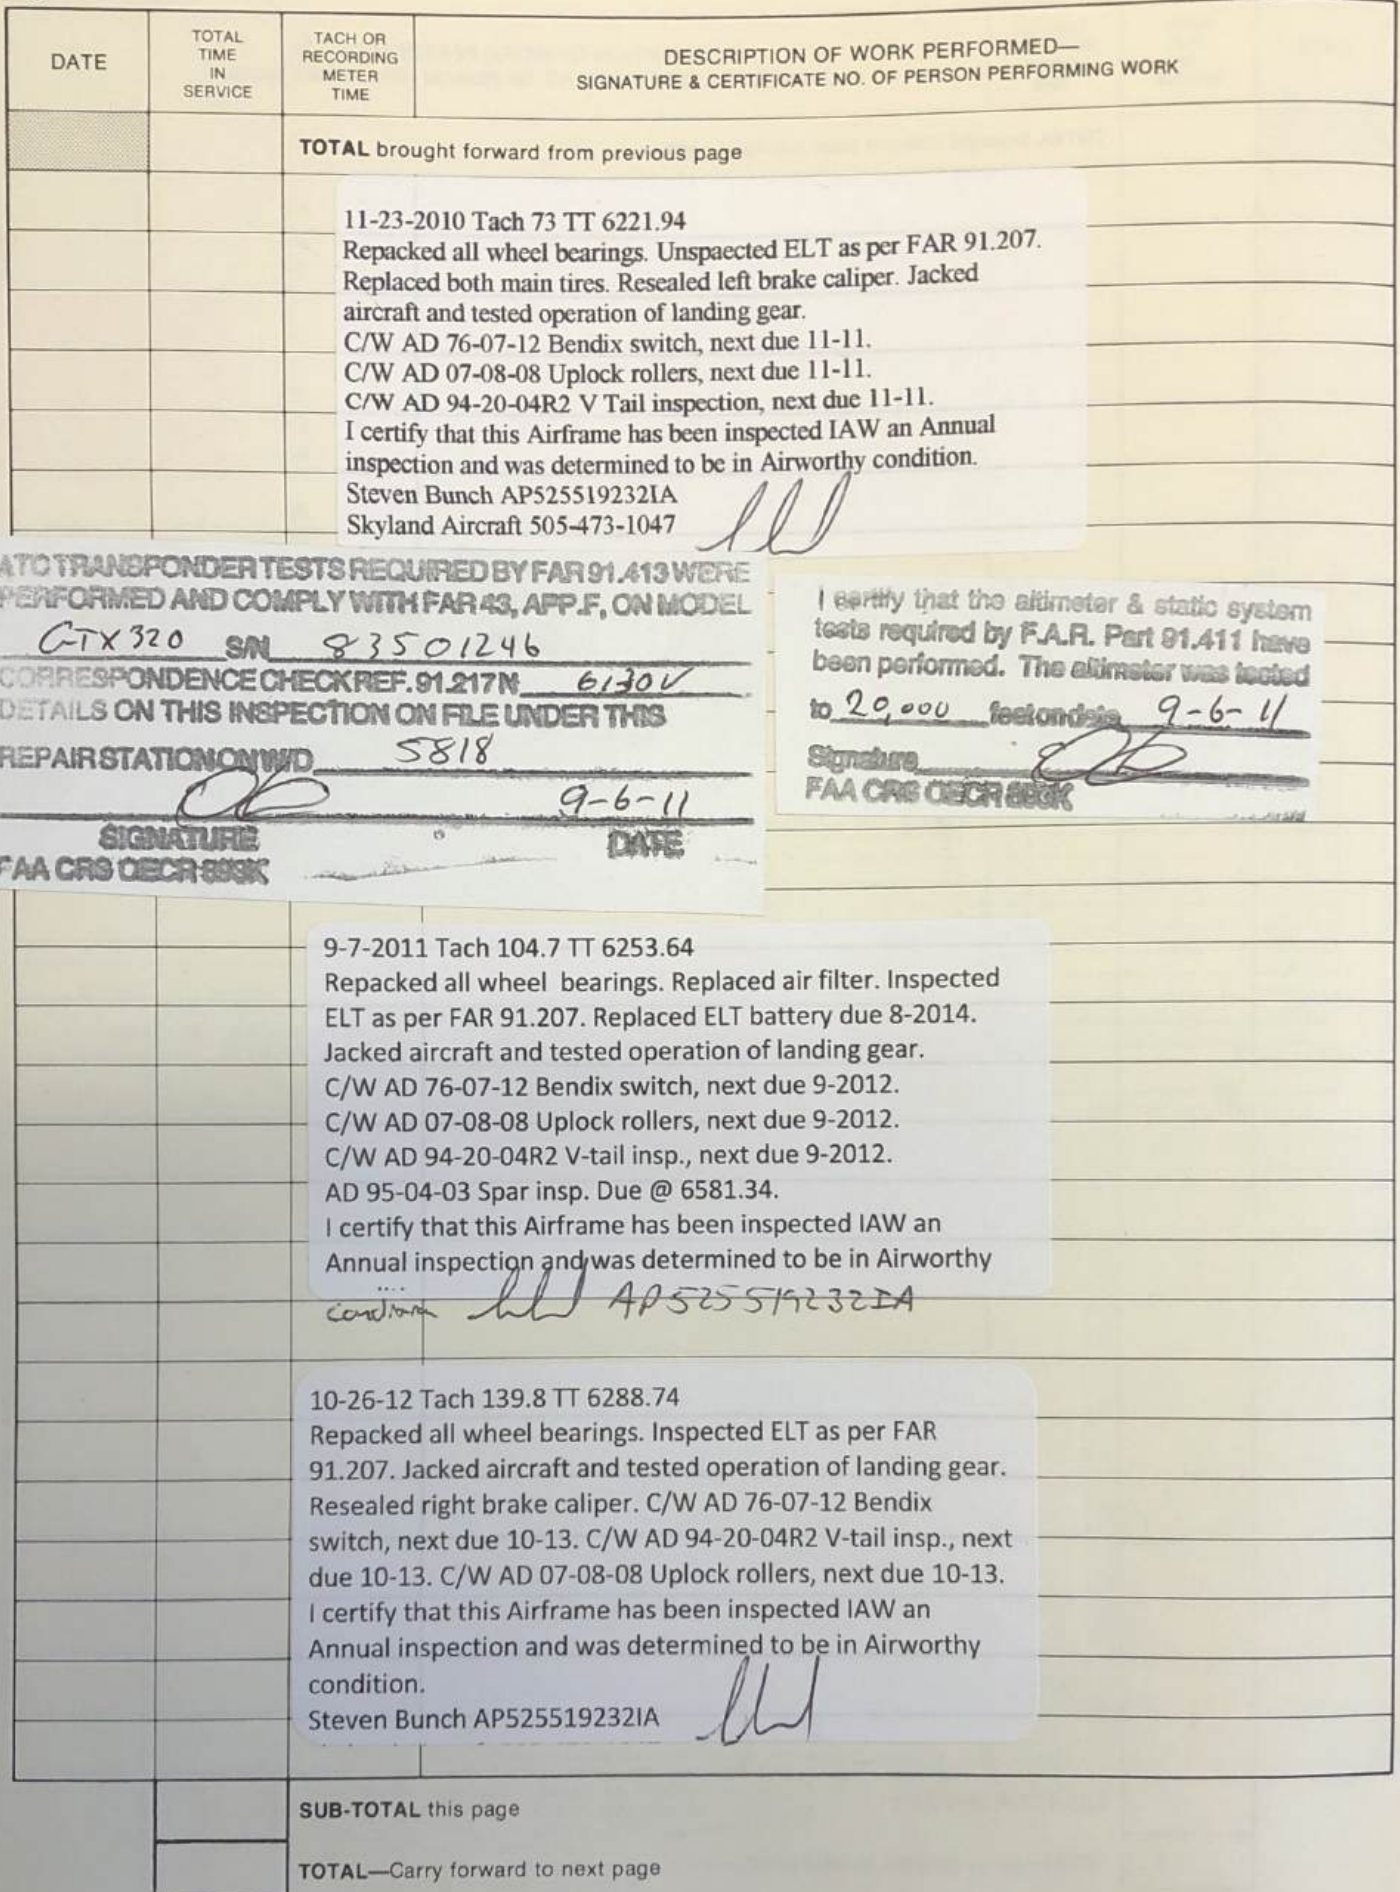 DATE
TOTAL
TIME
IN
SERVICE
TACH OR
RECORDING
METER
TIME
DESCRIPTION OF WORK PERFORMED—
SIGNATURE & CERTIFICATE NO. OF PERSON PERFORMING WORK
TOTAL brought forward from previous page
11-23-2010 Tach 73 TT 6221.94
Repacked all wheel bearings. Unspaected ELT as per FAR 91.207.
Replaced both main tires. Resealed left brake caliper. Jacked
aircraft and tested operation of landing gear.
C/W AD 76-07-12 Bendix switch, next due 11-11.
C/W AD 07-08-08 Uplock rollers, next due 11-11.
C/W AD 94-20-04R2 V Tail inspection, next due 11-11.
I certify that this Airframe has been inspected IAW an Annual
inspection and was determined to be in Airworthy condition.
Steven Bunch AP525519232IA
Skyland Aircraft 505-473-1047
ATC TRANSPONDER TESTS REQUIRED BY FAR 91.413 WERE
PERFORMED AND COMPLY WITH FAR 43, APP. F, ON MODEL
GTX 320 S/N 83501246
CORRESPONDENCE CHECK REF. 91.217 N 6130V
DETAILS ON THIS INSPECTION ON FILE UNDER THIS
REPAIR STATION ON W/D 5818
9-6-11
SIGNATURE DATE
FAA CRS OECR
I certify that the altimeter & static system
tests required by F.A.R. Part 91.411 have
been performed. The altimeter was tested
to 20,000 feet on date 9-6-11
Signature
FAA CRS OECR
9-7-2011 Tach 104.7 TT 6253.64
Repacked all wheel bearings. Replaced air filter. Inspected
ELT as per FAR 91.207. Replaced ELT battery due 8-2014.
Jacked aircraft and tested operation of landing gear.
C/W AD 76-07-12 Bendix switch, next due 9-2012.
C/W AD 07-08-08 Uplock rollers, next due 9-2012.
C/W AD 94-20-04R2 V-tail insp., next due 9-2012.
AD 95-04-03 Spar insp. Due @ 6581.34.
I certify that this Airframe has been inspected IAW an
Annual inspection and was determined to be in Airworthy
condition AP525519232IA
10-26-12 Tach 139.8 TT 6288.74
Repacked all wheel bearings. Inspected ELT as per FAR
91.207. Jacked aircraft and tested operation of landing gear.
Resealed right brake caliper. C/W AD 76-07-12 Bendix
switch, next due 10-13. C/W AD 94-20-04R2 V-tail insp., next
due 10-13. C/W AD 07-08-08 Uplock rollers, next due 10-13.
I certify that this Airframe has been inspected IAW an
Annual inspection and was determined to be in Airworthy
condition.
Steven Bunch AP525519232IA
SUB-TOTAL this page
TOTAL—Carry forward to next page